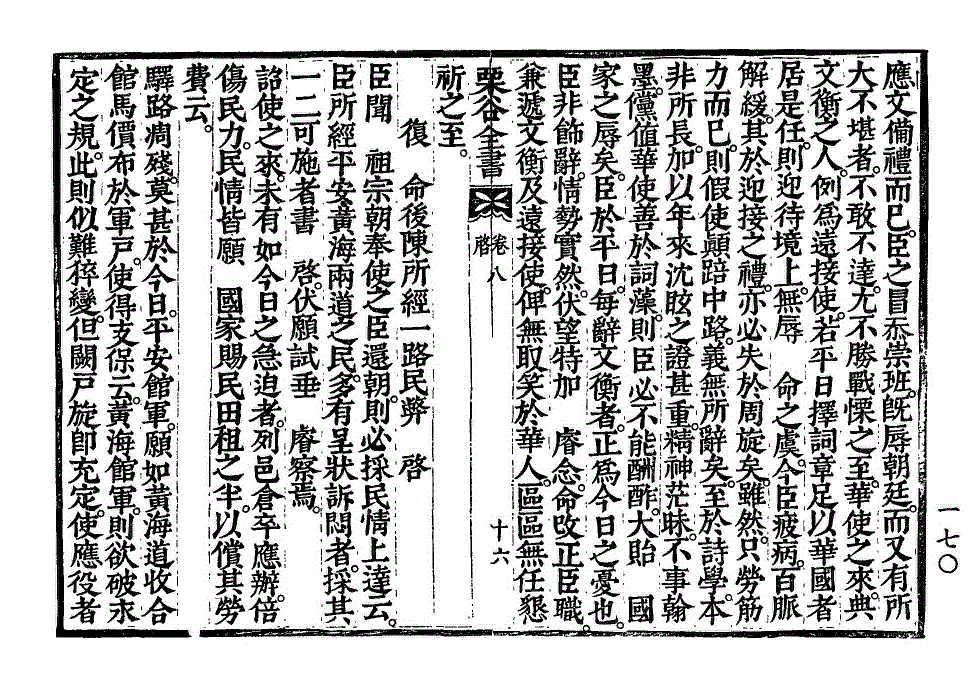 應文備禮而已。臣之冒忝崇班。旣辱朝廷。而又有所
大不堪者。不敢不達。尤不勝戰慄之至。華使之來。典
文衡之人。例爲遠接使。若平日擇詞章足以華國者
居是任。則迎待境上。無辱 命之虞。今臣疲病。百脈
解緩。其於迎接之禮。亦必失於周旋矣。雖然。只勞筋
力而已。則假使顚踣中路。義無所辭矣。至於詩學。本
非所長。加以年來沈眩之證甚重。精神茫昧。不事翰
墨。儻値華使善於詞藻。則臣必不能酬酢。大貽 國
家之辱矣。臣於平日。每辭文衡者。正爲今日之憂也。
臣非飾辭。情勢實然。伏望特加 睿念。命改正臣職。
兼遞文衡及遠接使。俾無取笑於華人。區區無任懇
栗谷全書 卷八 啓 十六
祈之至。
復 命後陳所經一路民弊 啓
臣聞 祖宗朝奉使之臣還朝。則必採民情上達云。
臣所經平安黃海兩道之民。多有呈狀訴悶者。採其
一二可施者書 啓。伏願試垂 睿察焉。
詔使之來。未有如今日之急迫者。列邑倉卒應辦。倍
傷民力。民情皆願 國家賜民田租之半。以償其勞
費云。
驛路凋殘。莫甚於今日。平安館軍。願如黃海道收合
館馬價布於軍戶。使得支保云。黃海館軍。則欲破永
定之規。此則似難猝變。但闕戶旋卽充定。使應役者
一七〇